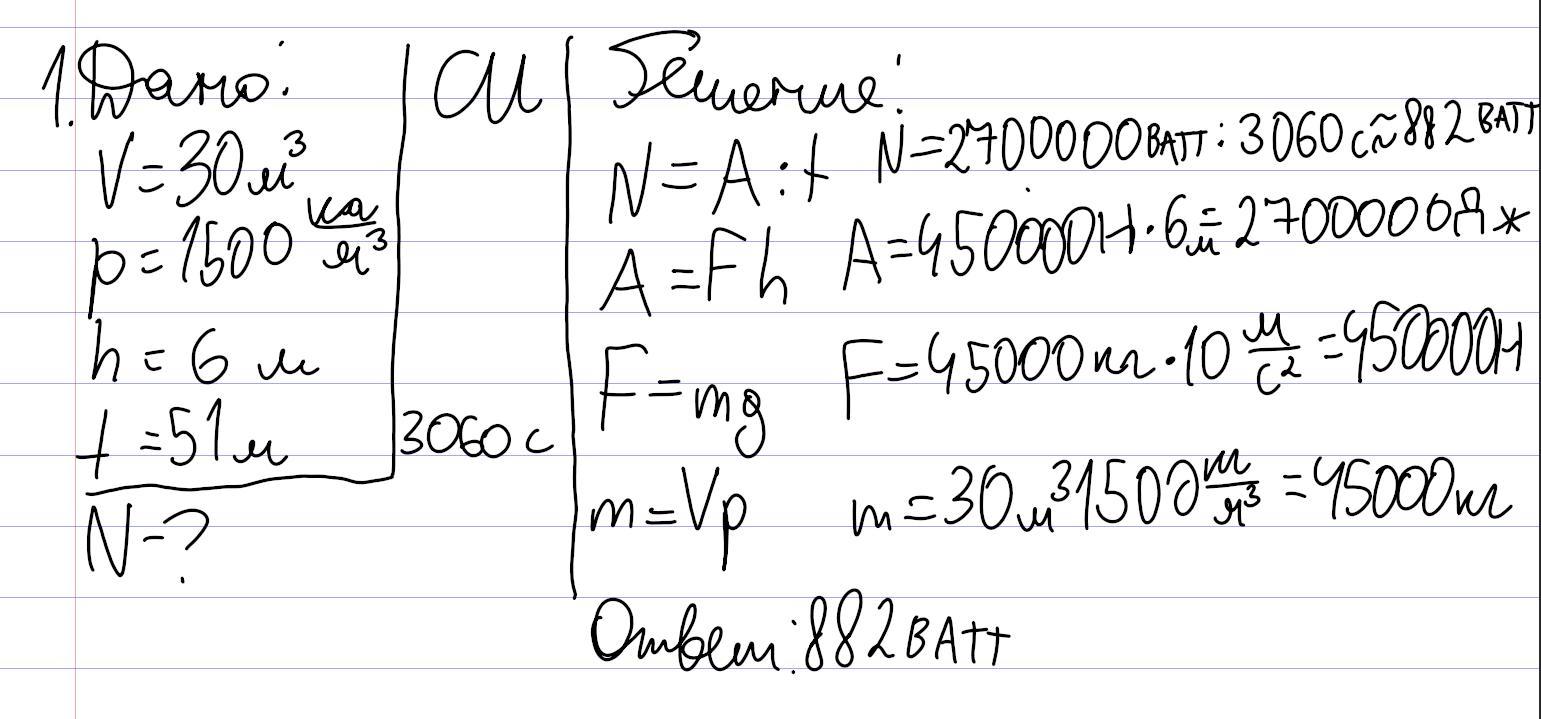 1. Дано:
V=30м³
p=1500 кг/м³
h=6 м
t=51м
N-?
СИ
3060 с
Решение:
N=A:t N=2700000ВАТТ:3060с≈882ВАТТ
A=Fh A=450000Н·6м=2700000Дж
F=mg F=45000кг·10 м/с²=450000Н
m=Vp m=30м³1500 т/м³=45000кг
Ответ:882ВАТТ